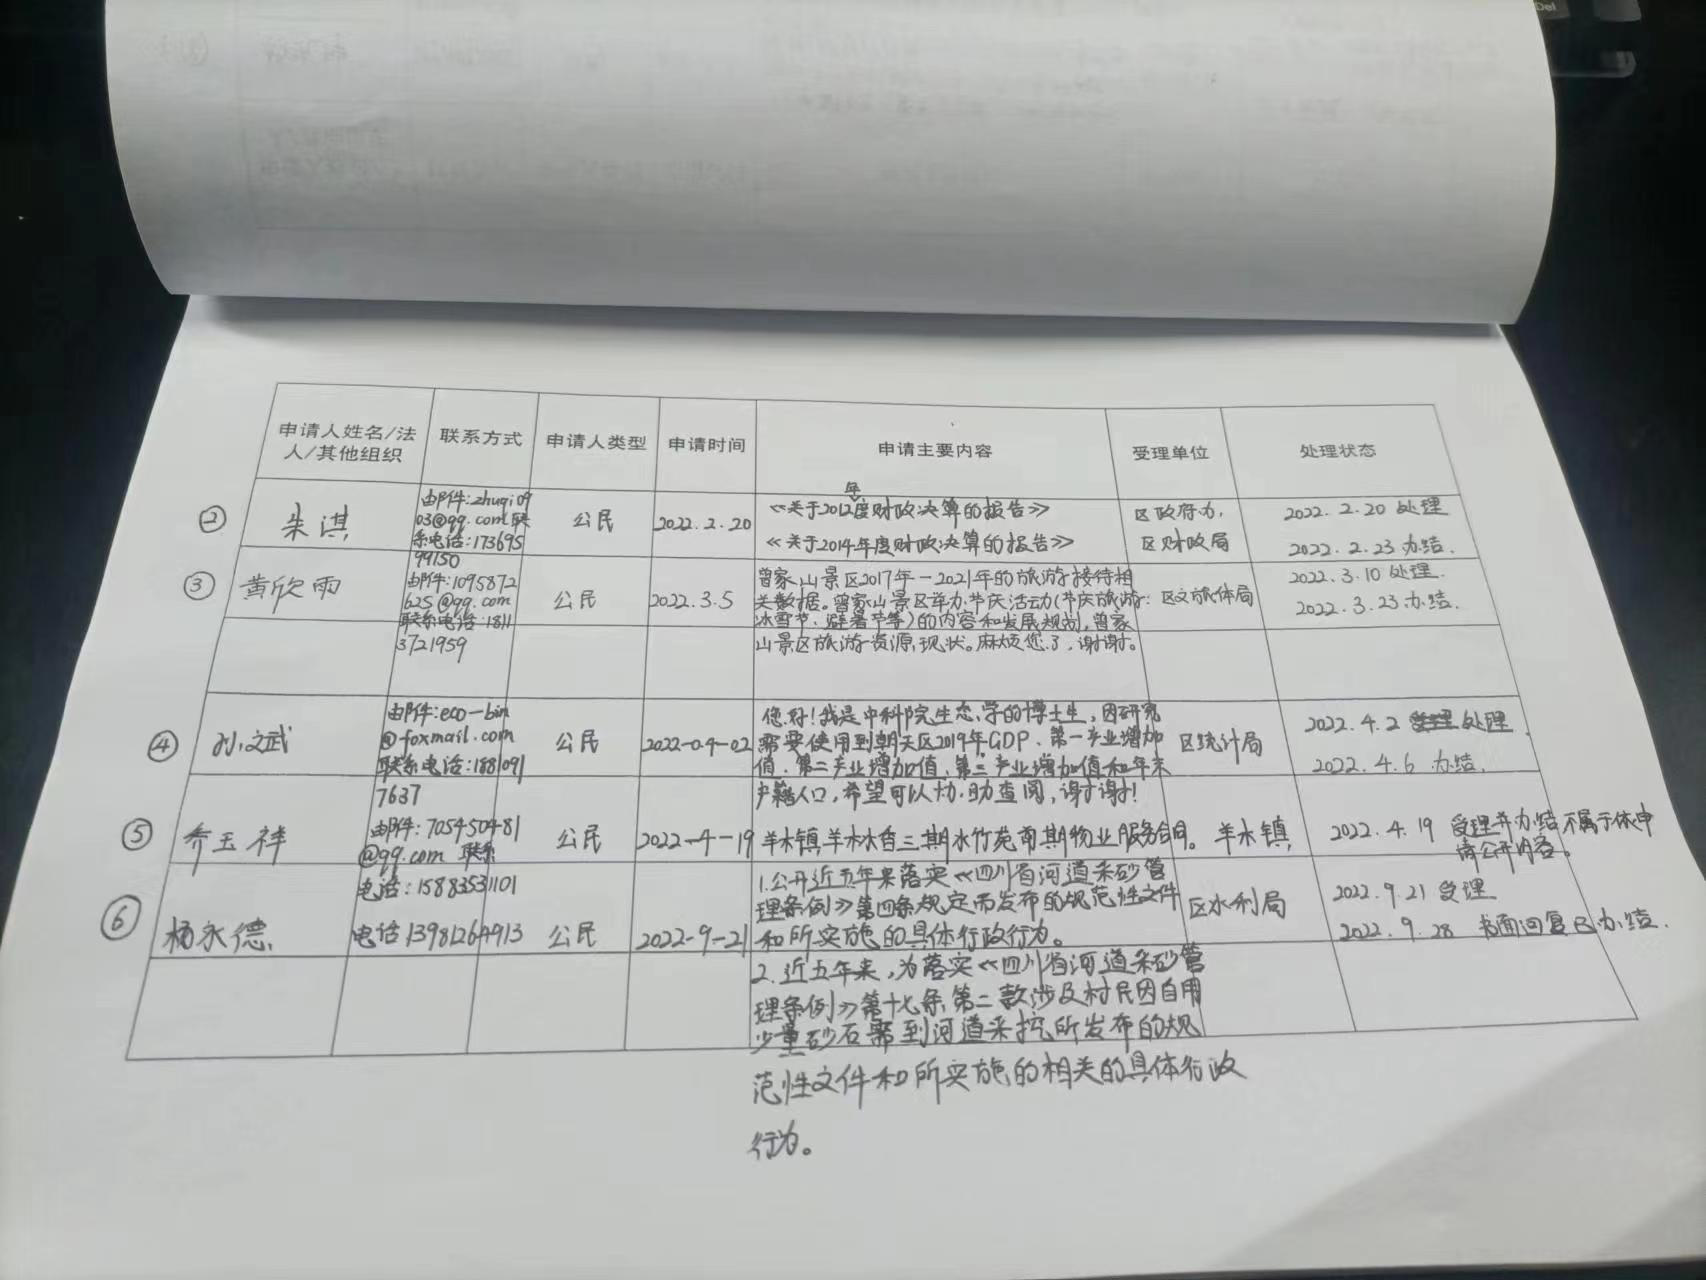 Del
申请人姓名/法
人/其他组织
联系方式
申请人类型
申请时间
申请主要内容
受理单位
处理状态
②
朱淇
邮件:zhuqi09
03@qq.com联
系电话:173695
99150
公民
2022.2.20
年
《关于2012度财政决算的报告》
《关于2014年度财政决算的报告》
区政府办,
区财政局
2022.2.20 处理
2022.2.23 办结.
③
黄欣雨
邮件:1095872
625@qq.com
联系电话:1811
3721959
公民
2022.3.5
曾家山景区2017年-2021年的旅游接待相
关数据。曾家山景区举办节庆活动(节庆旅游:
冰雪节、避暑节等)的内容和发展规划,曾家
山景区旅游资源现状。麻烦您了,谢谢。
区文旅体局
2022.3.10 处理.
2022.3.23 办结.
④
孙文武
邮件:eco-bin
@foxmail.com
联系电话:1881091
7637
公民
2022-04-02
您好!我是中科院生态学的博士生,因研究
需要使用到朝天区2019年GDP、第一产业增加
值、第二产业增加值、第三产业增加值和年末
户籍人口,希望可以协助查阅,谢谢!
区统计局
2022.4.2 处理.
2022.4.6 办结.
⑤
乔玉祥
邮件:705450481
@qq.com 联系
电话:15883531101
公民
2022-4-19
羊木镇羊木水香三期水竹苑前期物业服务合同。
羊木镇
2022.4.19 受理并办结不属于依申
请公开内容。
⑥
杨永德
电话13981264913
公民
2022-9-21
1.公开近五年来落实《四川省河道采砂管
理条例》第四条规定而发布的规范性文件
和所实施的具体行政行为。
2.近五年来,为落实《四川省河道采砂管
理条例》第十七条第二款涉及村民因自用
少量砂石需到河道采挖所发布的规
范性文件和所实施的相关的具体行政
行为。
区水利局
2022.9.21 受理
2022.9.28 书面回复已办结.